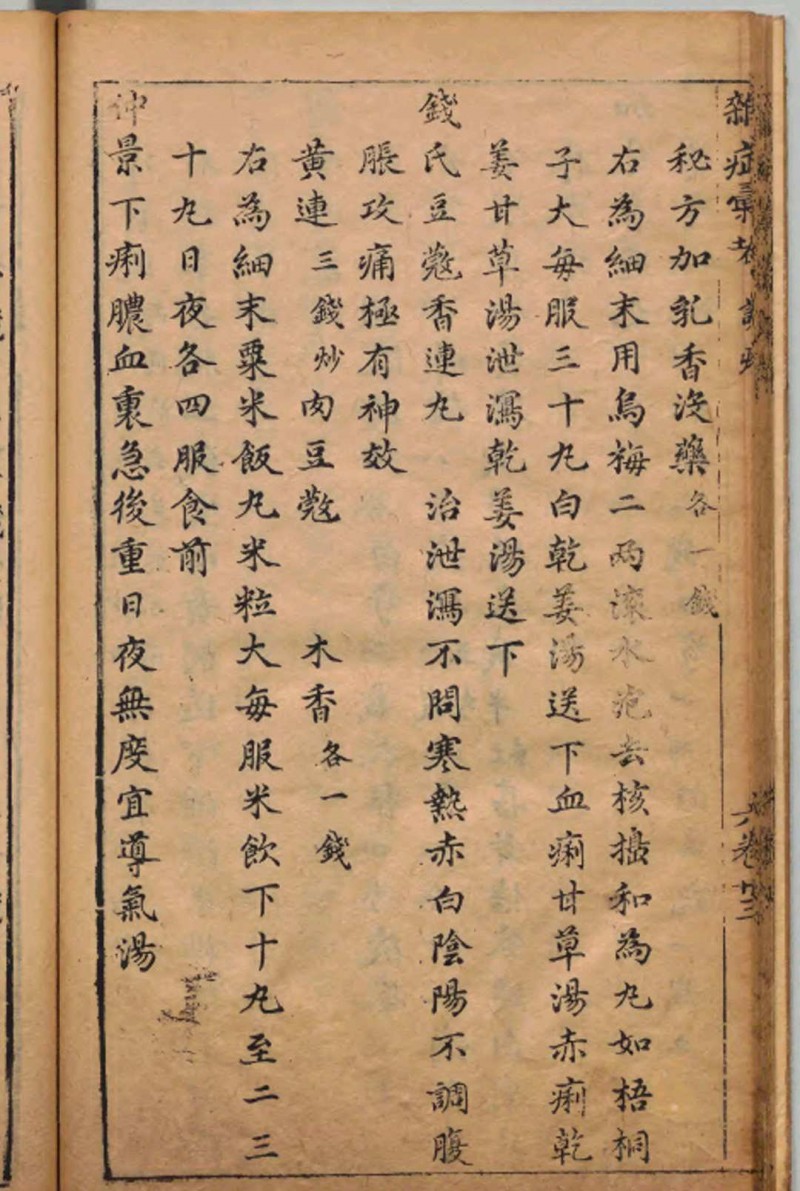 秘方加乳香沒藥各一錢
右為細末用烏梅二兩滾水泡去核搗和為丸如梧桐
子大每服三十丸白乾姜湯送下血痢甘草湯赤痢乾
姜甘草湯泄瀉乾姜湯送下
錢氏豆蔻香連丸 治泄瀉不問寒熱赤白陰陽不調腹
脹攻痛極有神效
黃連三錢炒肉豆蔻 木香各一錢
右為細末粟米飯丸米粒大每服米飲下十丸至二三
十丸日夜各四服食前
仲景下痢膿血裏急後重日夜無度宜導氣湯